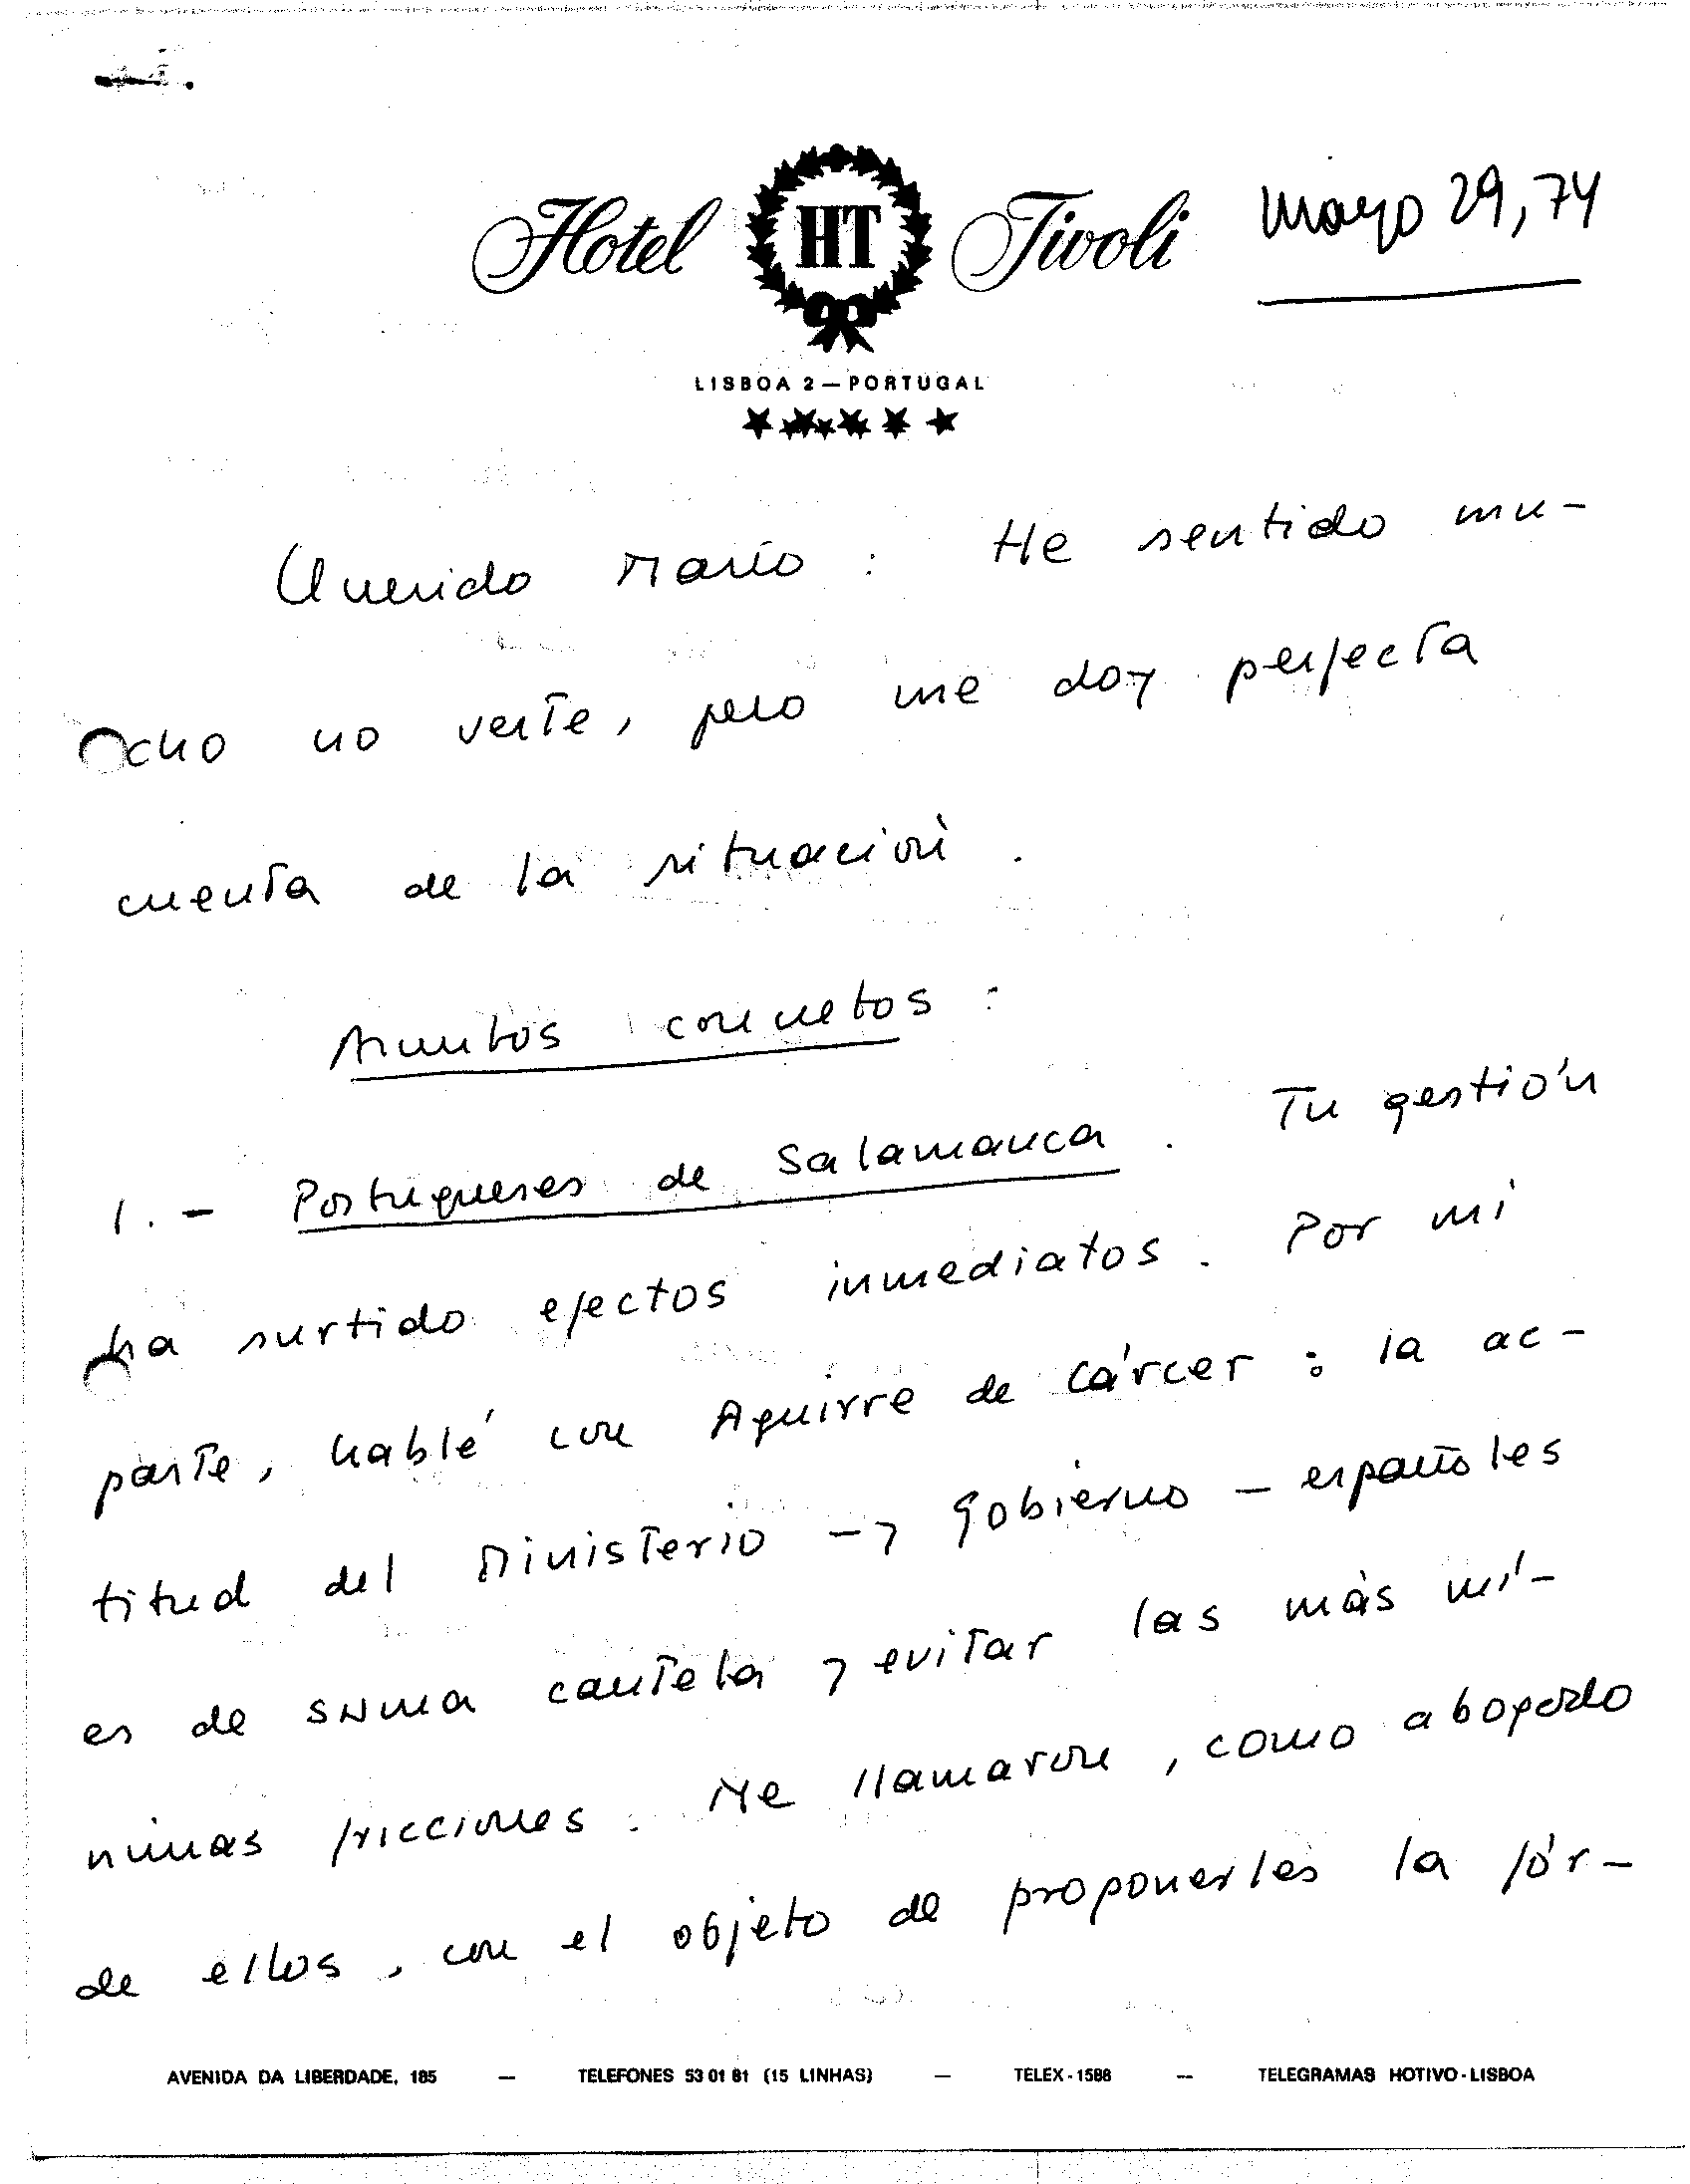 Hotel HT Tivoli
mayo 29, 74
LISBOA 2 — PORTUGAL
Querido Mario : He sentido mu-
cho no verte, pero me doy perfecta
cuenta de la situación .
Asuntos concretos :
1. - Portugueses de Salamanca . Tu gestión
ha surtido efectos inmediatos . Por mi
parte, hablé con Aguirre de Cárcer : la ac-
titud del Ministerio - y Gobierno - españoles
es de suma cautela y evitar las más mí-
nimas fricciones . Me llamaron , como abogado
de ellos , con el objeto de proponerles la fór-
AVENIDA DA LIBERDADE, 185 — TELEFONES 53 01 81 (15 LINHAS) — TELEX - 1588 — TELEGRAMAS HOTIVO - LISBOA